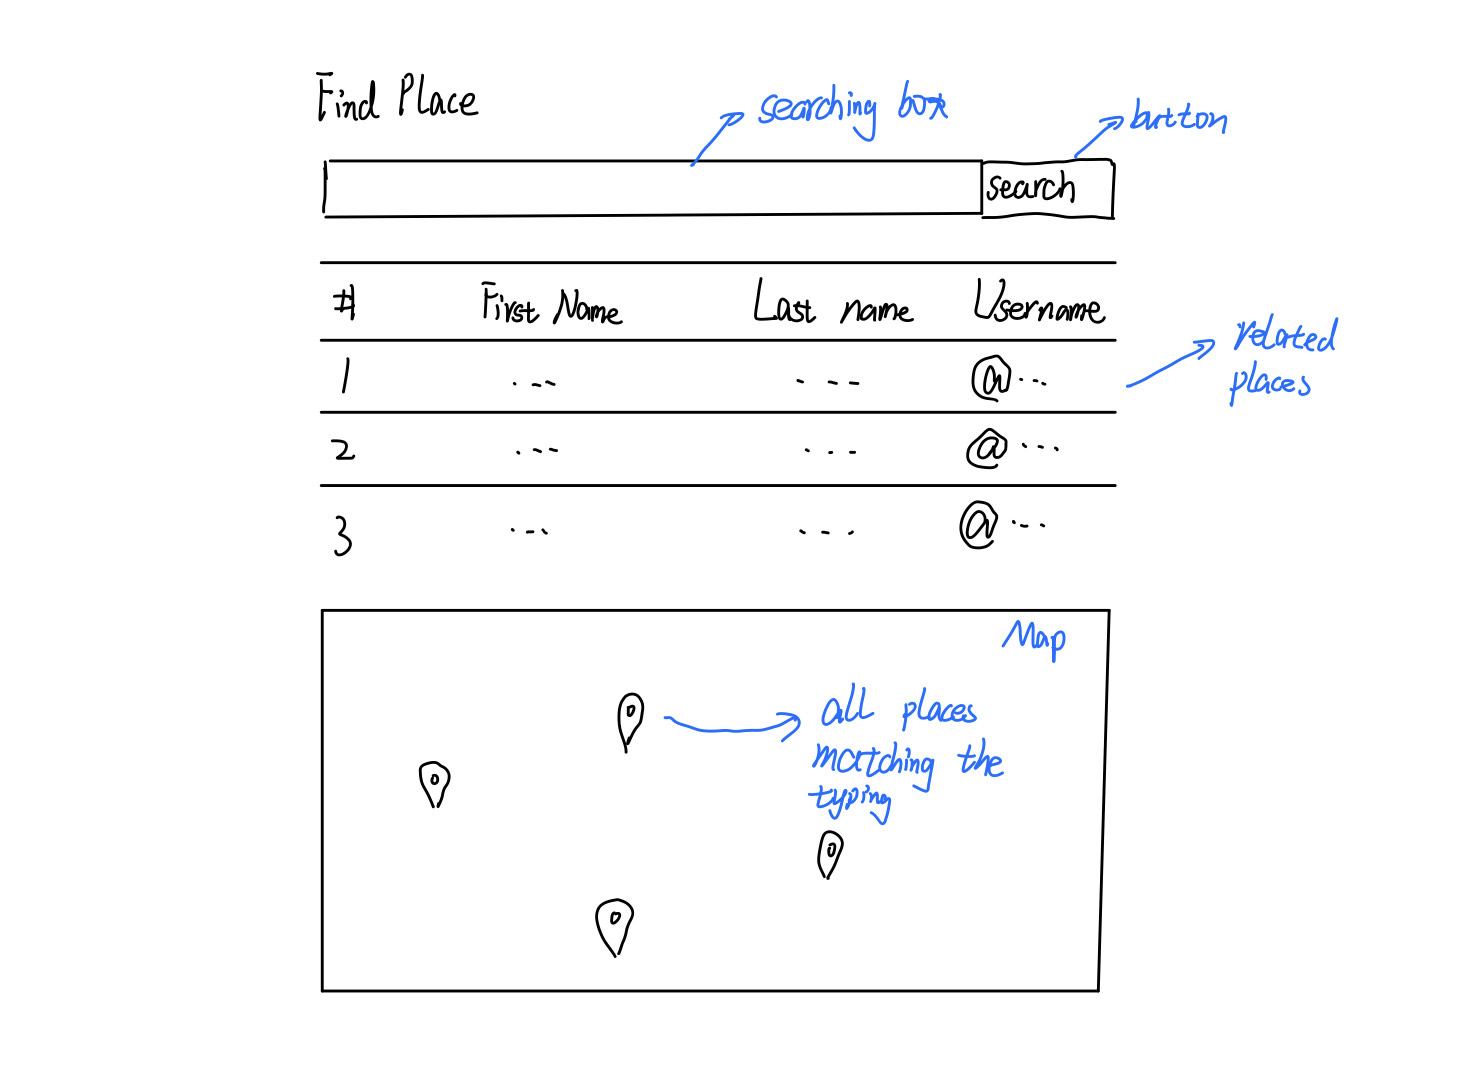 Find Place
searching box
button
search
# First Name Last name Username
1 ... ... @...
2 ... ... @...
3 ... ... @...
related
places
Map
all places
matching the
typing